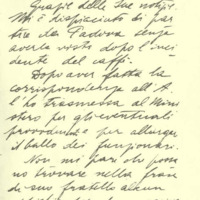 Grazie delle sue notizie.
Mi è dispiaciuto di par
tire da Padova senza
averla vista dopo l'inci
dente del caffè.
Dopo aver fatta la
corrispondenza all'A.
l'ho trasmessa al Mini
stero per gli eventuali
provvedim. e per
il ballo dei funzionari.
Non mi pari che poss
no trovare nella fran
di suo fratello alcun